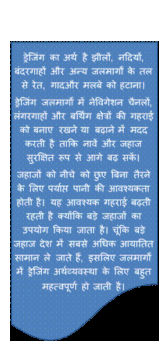 ड्रेजिंग का अर्थ है झीलों, नदियों,
बंदरगाहों और अन्य जलमार्गों के तल
से रेत, गादऔर मलबे को हटाना।
ड्रेजिंग जलमार्गों में नेविगेशन चैनलों,
लंगरगाहों और बर्थिंग क्षेत्रों की गहराई
को बनाए रखने या बढ़ाने में मदद
करती है ताकि नावें और जहाज
सुरक्षित रूप से आगे बढ़ सकें।
जहाजों को नीचे को छुए बिना तैरने
के लिए पर्याप्त पानी की आवश्यकता
होती है। यह आवश्यक गहराई बढती
रहती है क्योंकि बड़े जहाजों का
उपयोग किया जाता है। चूंकि बड़े
जहाज देश में सबसे अधिक आयातित
सामान ले जाते हैं, इसलिए जलमार्गों
में ड्रेजिंग अर्थव्यवस्था के लिए बहुत
महत्वपूर्ण हो जाती है।